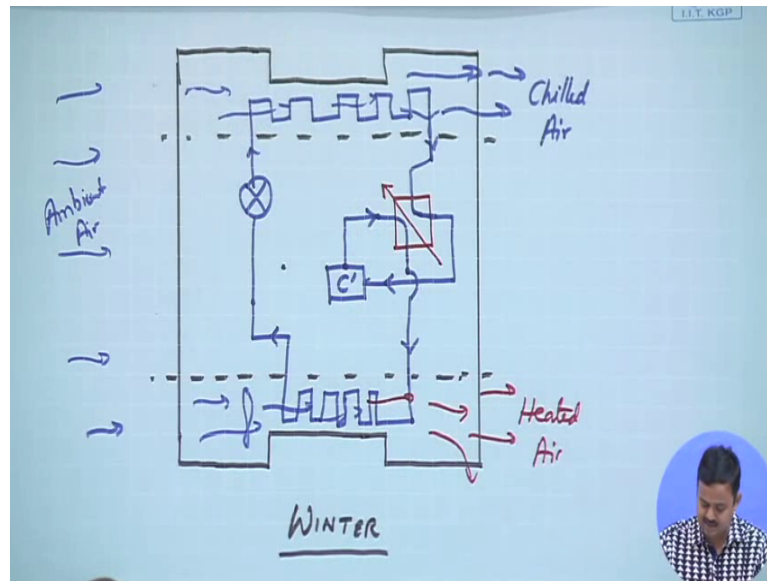 I.I.T. KGP
Chilled
Air
Ambient
Air
C'
Heated
Air
WINTER